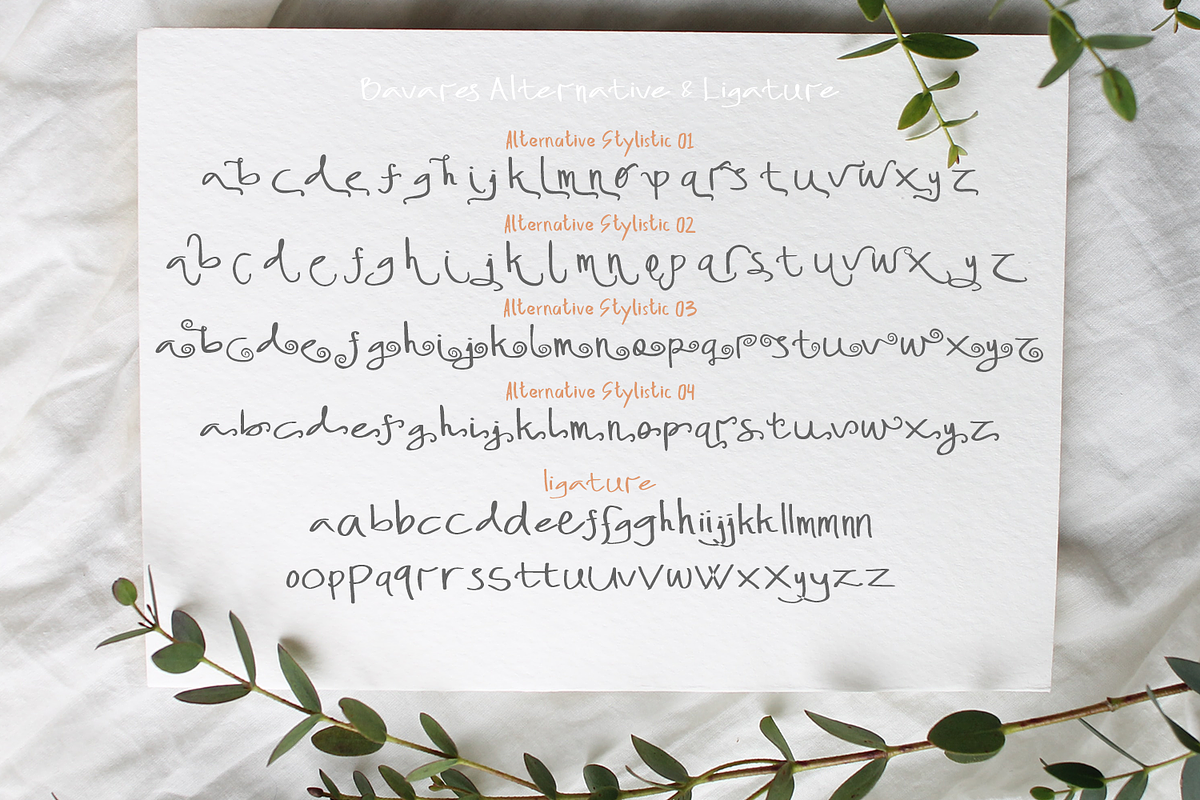 Bavares Alternative & Ligature
Alternative Stylistic 01
a b c d e f g h i j k l m n o p q r s t u v w x y z
Alternative Stylistic 02
a b c d e f g h i j k l m n o p q r s t u v w x y z
Alternative Stylistic 03
a b c d e f g h i j k l m n o p q r s t u v w x y z
Alternative Stylistic 04
a b c d e f g h i j k l m n o p q r s t u v w x y z
ligature
aabbccddeeffgghhiijjkkllmmnn
ooppqqrrssttuuvvwwxxyyzz